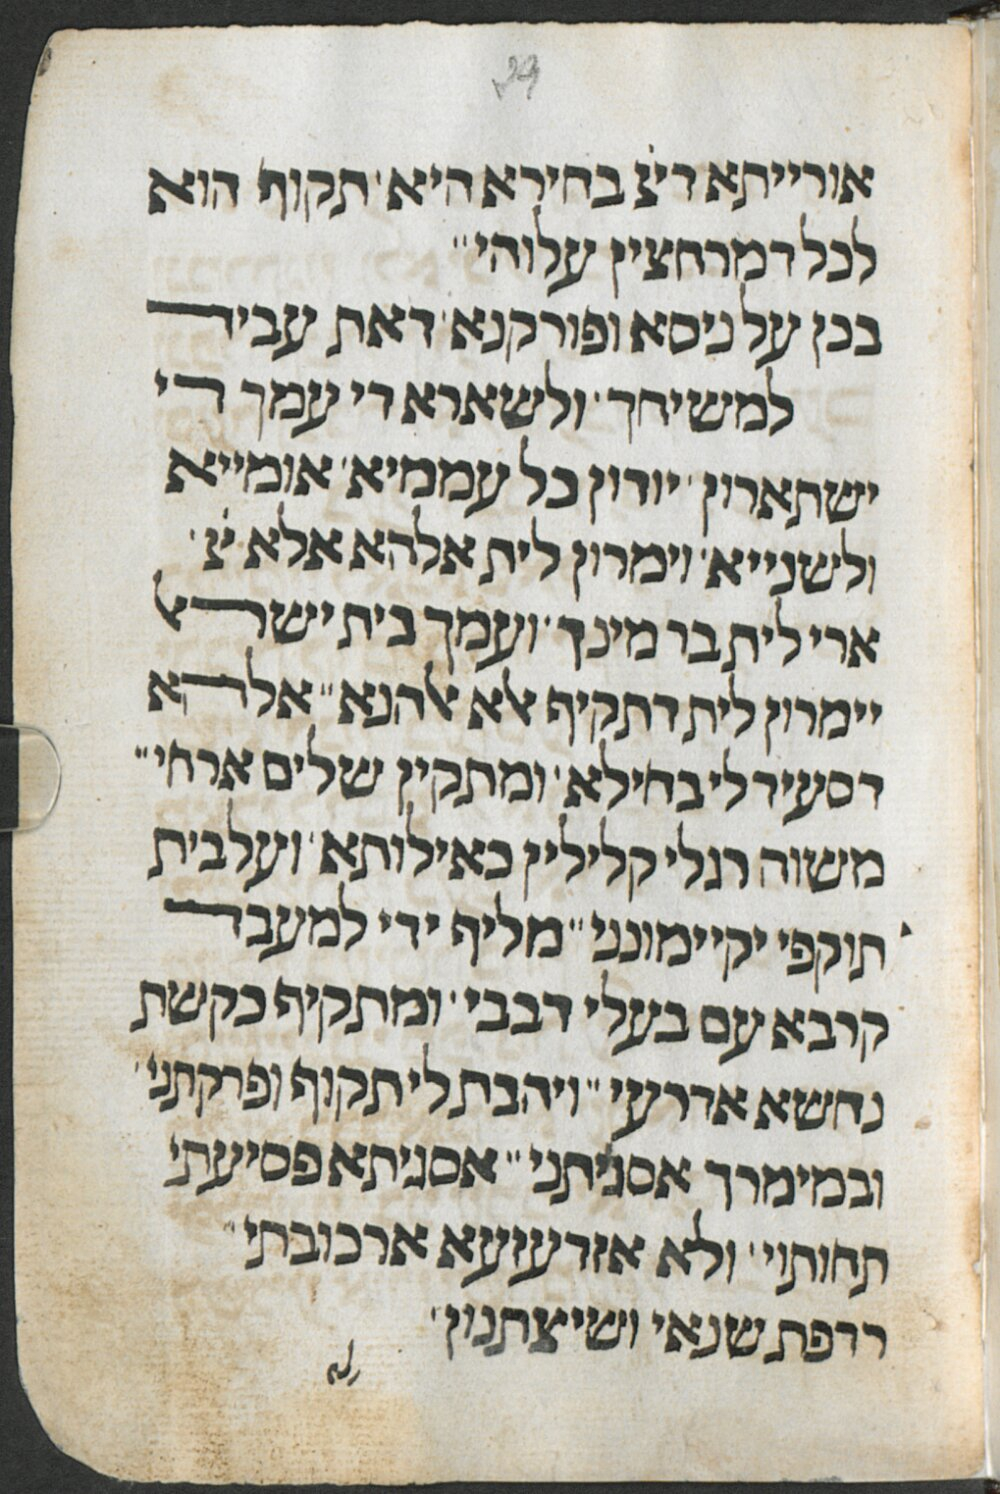 29
אורייתא דיֹיֹ בחירא היא׳ תקוף הוא
לכל דמרחצין עלוהי״
בכן על ניסא ופורקנא׳ דאת עביד
למשיחך׳ ולשארא די עמך די
ישתארון׳ יודון כל עממיא׳ אומייא
ולשנייא׳ וימרון לית אלהא אלא יֹיֹ׳
ארי לית בר מינך׳ ועמך בית ישראל
יימרון לית דתקיף אלא אלהנא״ אלהא
דסעיד לי בחילא׳ ומתקין שלים ארחי״
משוה רגלי קלילין כאילותא׳ ועל בית
תוקפי יקיימונני״ מליף ידי למעבד
קרבא עם בעלי דבבי׳ ומתקיף כקשת
נחשא אדרעי״ ויהבת לי תקוף ופרקתני׳
ובמימרך אסגיתני״ אסגיתא פסיעתי
תחותוי׳ ולא אזדעזעא ארכובתי״
רדפת שנאי ושיצתנון׳